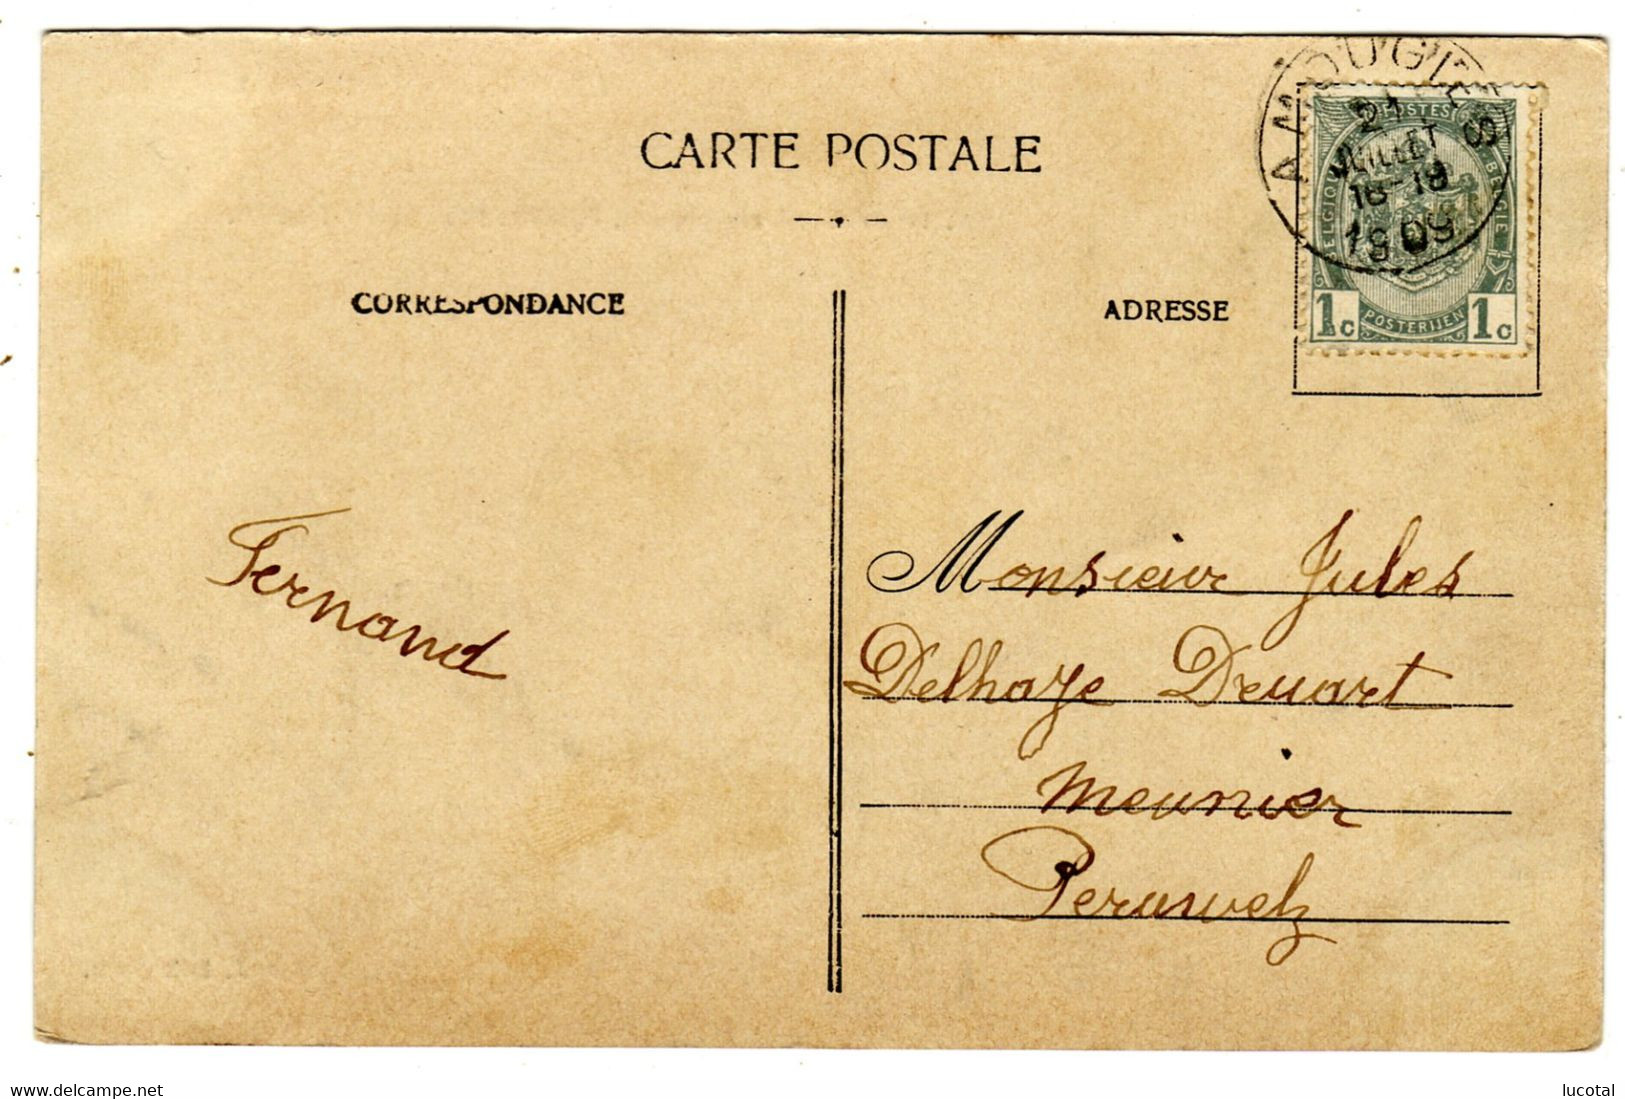 CARTE POSTALE
CORRESPONDANCE
ADRESSE
AMOUGIES
21
JUILLET
18-19
1909
POSTES
BELGIQUE
BELGIE
POSTERIJEN
1c 1c
Fernand
Monsieur Jules
Delhaye Druart
Meunier
Peruwelz
www.delcampe.net
lucotal